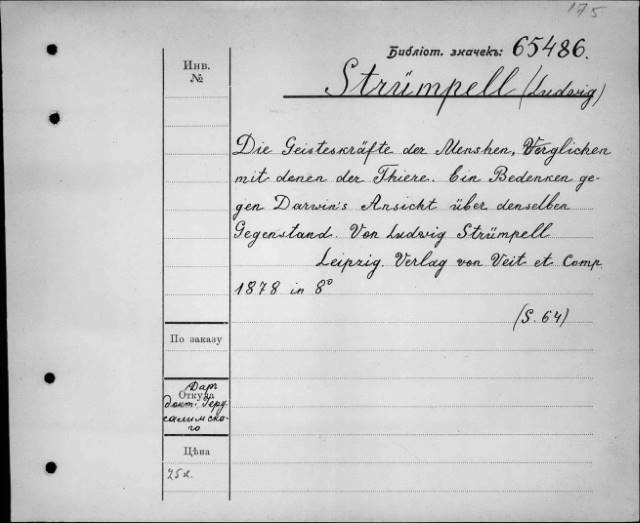 175
Библіот. значекъ: 65486.
Инв.
№
Strümpell (Ludwig)
Die Geisteskräfte der Menshen, Verglichen
mit denen der Thiere. Ein Bedenken ge-
gen Darwin's Ansicht über denselben
Gegenstand. Von Ludwig Strümpell
Leipzig. Verlag von Veit et Comp.
1878 in 8°
(S. 64)
По заказу
Откуда
Даръ
докт. Іеру-
салимско-
го
Цѣна